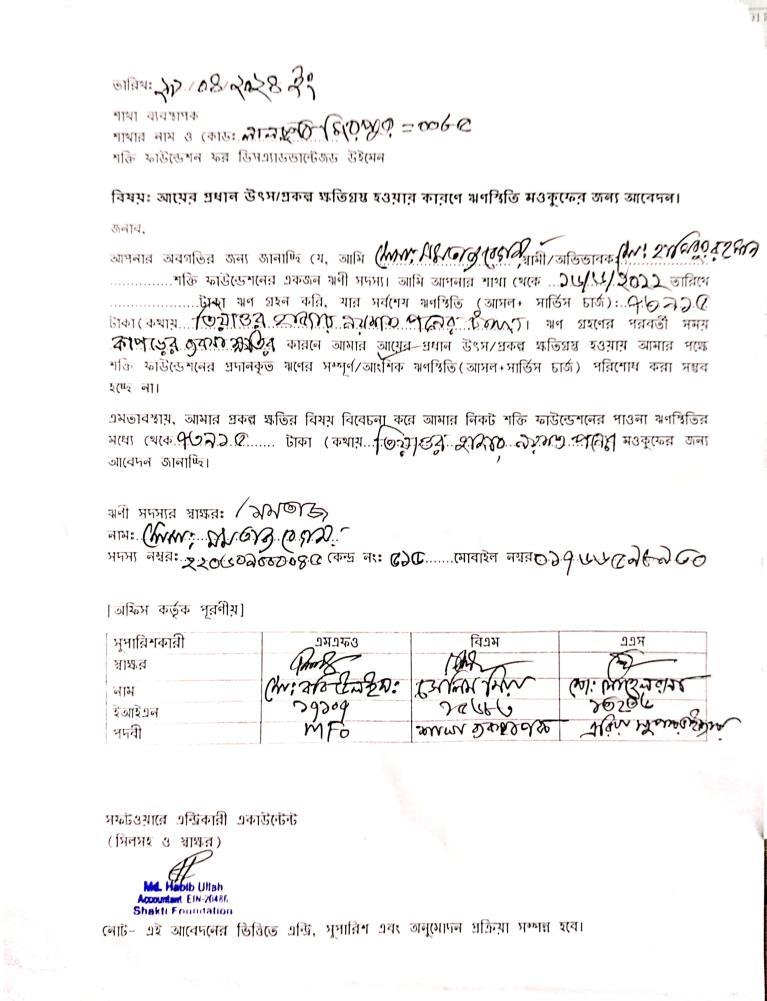 তারিখ: ২৯/০৪/২০২৪ ইং
শাখা ব্যবস্থাপক
শাখার নাম ও কোড: মিরপুর = ০০৮৫
শক্তি ফাউন্ডেশন ফর ডিসএ্যাডভান্টেজড উইমেন
বিষয়: আয়ের প্রধান উৎস/প্রকল্প ক্ষতিগ্রস্থ হওয়ার কারণে ঋণস্থিতি মওকুফের জন্য আবেদন।
জনাব,
আপনার অবগতির জন্য জানাচ্ছি যে, আমি মোসা: মমতাজ বেগম স্বামী/অভিভাবক মো: হাবিবুর রহমান
...............শক্তি ফাউন্ডেশনের একজন ঋণী সদস্য। আমি আপনার শাখা থেকে ...২০২২ তারিখে
.....................টাকা ঋণ গ্রহন করি, যার সর্বশেষ ঋণস্থিতি (আসল+ সার্ভিস চার্জ):..৭৩৯১৫
টাকা(কথায়...তিয়াত্তর হাজার নয়শত পনের টাকা)। ঋণ গ্রহণের পরবর্তী সময়
কাপড়ের ব্যবসা ক্ষতির কারনে আমার আয়ের প্রধান উৎস/প্রকল্প ক্ষতিগ্রস্থ হওয়ায় আমার পক্ষে
শক্তি ফাউন্ডেশনের প্রদানকৃত ঋণের সম্পূর্ণ/আংশিক ঋণস্থিতি(আসল+সার্ভিস চার্জ) পরিশোধ করা সম্ভব
হচ্ছে না।
এমতাবস্থায়, আমার প্রকল্প ক্ষতির বিষয় বিবেচনা করে আমার নিকট শক্তি ফাউন্ডেশনের পাওনা ঋণস্থিতির
মধ্যে থেকে.৭৩৯১৫....... টাকা (কথায়...তিয়াত্তর হাজার নয়শত পনের মওকুফের জন্য
আবেদন জানাচ্ছি।
ঋণী সদস্যর স্বাক্ষর: মমতাজ
নাম: মোসা: মমতাজ বেগম
সদস্য নম্বর: কেন্দ্র নং: ৫১৫.......মোবাইল নম্বর
[অফিস কর্তৃক পূরণীয়]
সুপারিশকারী এমএফও বিএম এএস
স্বাক্ষর
নাম সেলিম মিয়া মো: সোহেল রানা
ইআইএন ১৭১০৭
পদবী MFO শাখা ব্যবস্থাপক এরিয়া সুপারভাইজার
সফটওয়ারে এন্ট্রিকারী একাউন্টেন্ট
(সিলসহ ও স্বাক্ষর)
Md. Habib Ullah
Accountant EIN-20486
Shakti Foundation
নোট- এই আবেদনের ভিত্তিতে এন্ট্রি, সুপারিশ এবং অনুমোদন প্রক্রিয়া সম্পন্ন হবে।